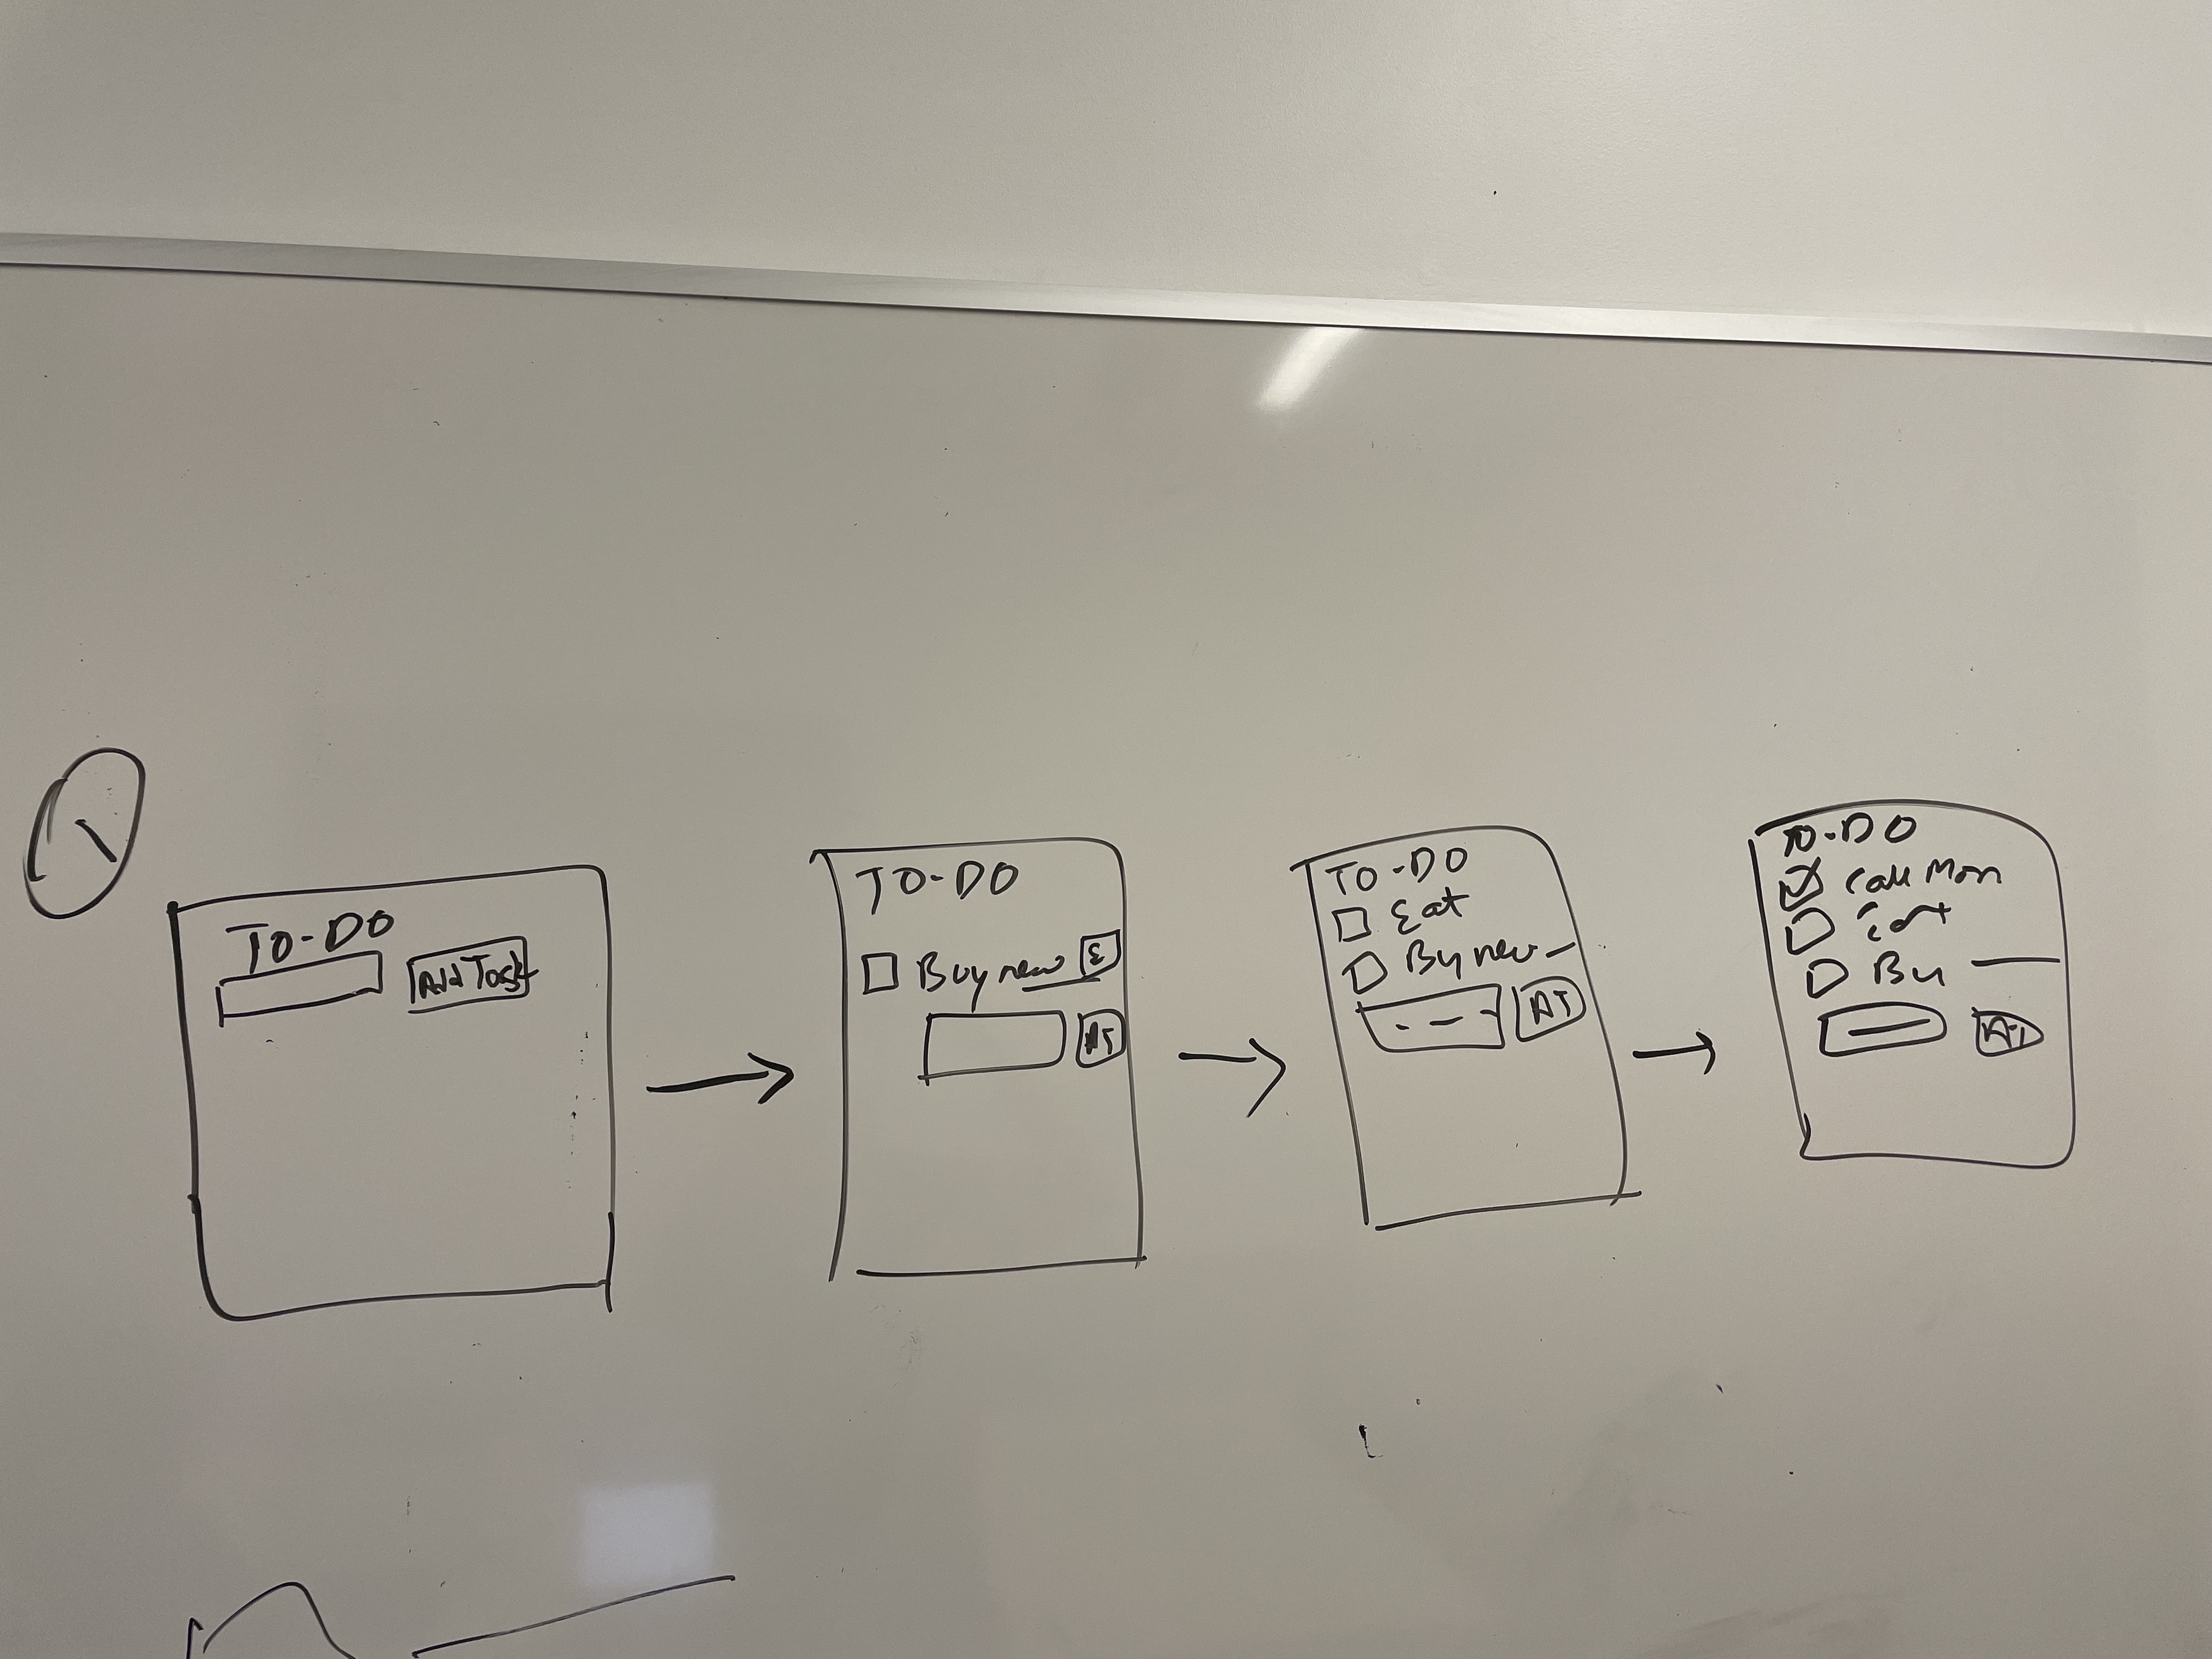 TO-DO
Add Task
TO-DO
Buy new E
AT
TO-DO
Eat
By new
AT
TO-DO
Call Mom
Eat
Bu
AT